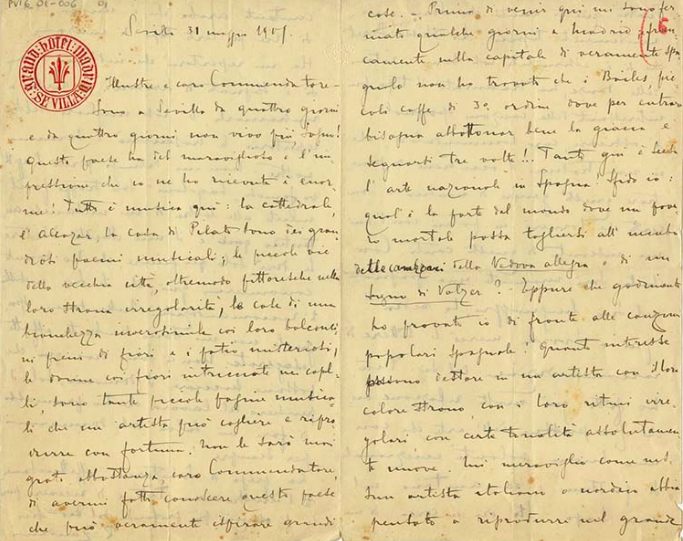 PV16_01-006 01
GRAND HOTEL MADRID
SEVILLA
Sevilla 31 maggio 1909.
Illustre e caro Commendatore -
Sono a Sevilla da quattro giorni
e da quattro giorni non vivo più, sogno!
Questo paese ha del meraviglioso e l'im-
pressione che io ne ho ricevuta è enor-
me! Tutto è musica qui: la cattedrale,
l'Alcazar, la casa di Pilato sono dei gran-
diosi poemi musicali; le piccole vie
della vecchia città, oltremodo pittoresche nella
loro strana irregolarità, le case di una
bianchezza inverosimile coi loro balconci-
ni pieni di fiori e i patio misteriosi,
le donne coi fiori intrecciati nei capel-
li, sono tante piccole pagine musica-
li che un artista può cogliere e ripro
durre con fortuna. Non le sarò mai
grato abbastanza, caro Commendatore,
di avermi fatto conoscere questo paese
che può veramente ispirare grandi
cose. - Prima di venir qui mi sono fer
mato qualche giorno a Madrid e fran
camente nella capitale di veramente spa
gnolo non ho trovato che i Bailes, pic
coli caffè di 3º ordine dove per entrare
bisogna abbottonar bene la giacca e
segnarsi tre volte!. Tanto giù è scesa
l'arte nazionale in Spagna. Sfido io:
qual'è la parte del mondo dove un pove
ro mortale possa togliersi all'incubo
delle canzoni della Vedova allegra o di un
Sogno di Valzer? Eppure che godimento
ho provato io di fronte alle canzoni
popolari spagnole! Quanto interesse
possono destare in un artista con il loro
colore strano, con i loro ritmi irre-
golari con certe tonalità assolutamen
te nuove. Mi meraviglio come nes
sun artista italiano o nordico abbia
pensato a riprodurre nel grande